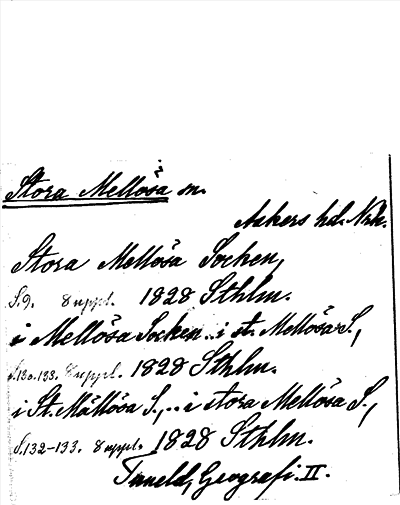 Stora Mellösa sn.
Askers hd. Nrk.
Stora Mellösa Socken,
S.9. 8 uppl. 1828 Sthlm.
i Mellösa Socken.. i st. Mellösa S.,
s.130.133. 8 uppl. 1828 Sthlm.
i St. Mällösa S.,.. i stora Mellösa S.,
S.132-133. 8 uppl. 1828 Sthlm.
Tuneld, Geografi. II.